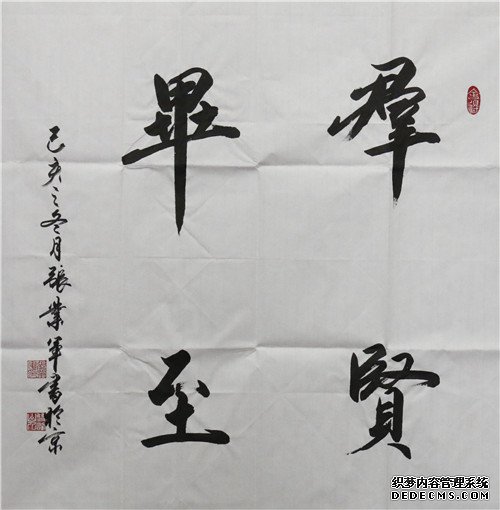 羣賢
畢至
己亥之冬月張業軍書於京
织梦内容管理系统
DEDECMS.COM